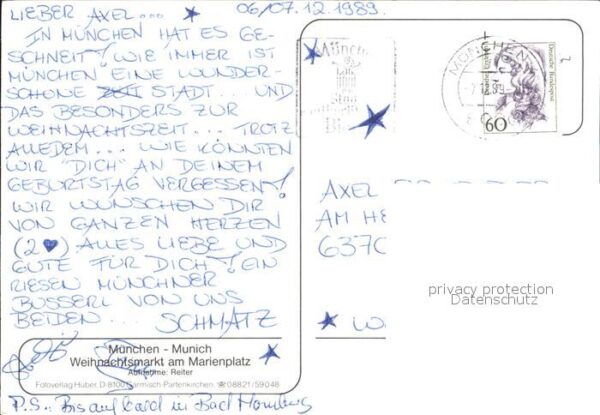 LIEBER AXEL... 06/07.12.1989
IN MÜNCHEN HAT ES GE-
SCHNEIT! WIE IMMER IST
MÜNCHEN EINE WUNDER-
SCHÖNE ZEIT STADT... UND
DAS BESONDERS ZUR
WEIHNACHTSZEIT... TROTZ
ALLEDEM... WIE KÖNNTEN
WIR "DICH" AN DEINEM
GEBURTSTAG VERGESSEN!
WIR WÜNSCHEN DIR
VON GANZEN HERZEN
(2♥) ALLES LIEBE UND
GUTE FÜR DICH! EIN
RIESEN MÜNCHNER
BUSSERL VON UNS
BEIDEN... SCHMATZ
München - Munich
Weihnachtsmarkt am Marienplatz
Aufnahme: Reiter
Fotoverlag Huber, D-8100 Garmisch-Partenkirchen, ☎ 08821/59048
P.S.: Bis auf bald in Bad Homburg
MÜNCHEN
Deutsche Bundespost
60
AXEL
AM HE
6370
privacy protection
Datenschutz